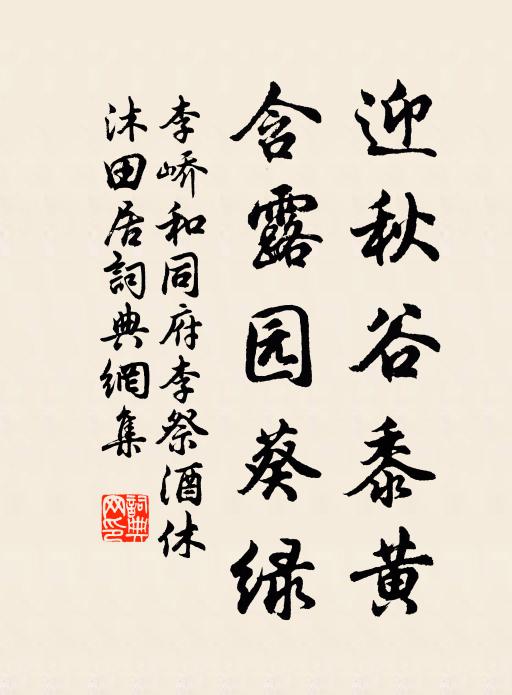 迎秋谷黍黄
含露园葵绿
李峤和同府李祭酒休
沐田居詞典網集
詞典網印